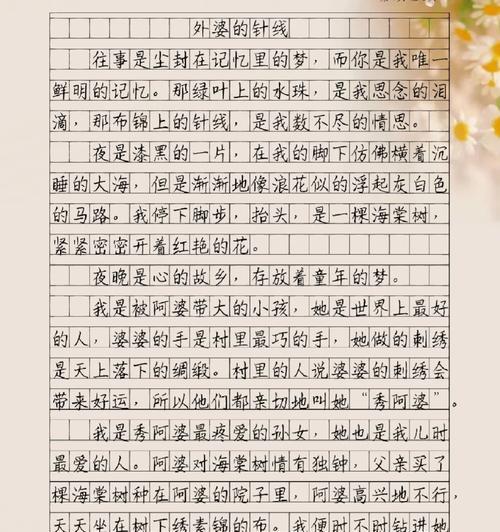 外婆的针线
往事是尘封在记忆里的梦，而你是我唯一
鲜明的记忆。那绿叶上的水珠，是我思念的泪
滴，那布锦上的针线，是我数不尽的情思。
夜是漆黑的一片，在我的脚下仿佛横着沉
睡的大海，但是渐渐地像浪花似的浮起灰白色
的马路。我停下脚步，抬头，是一棵海棠树，
紧紧密密开着红艳的花。
夜晚是心的故乡，存放着童年的梦。
我是被阿婆带大的小孩，她是世界上最好
的人，婆婆的手是村里最巧的手，她做的刺绣
是天上落下的绸缎。村里的人说婆婆的刺绣会
带来好运，所以他们都亲切地叫她“秀阿婆”。
我是秀阿婆最疼爱的孙女，她也是我儿时
最爱的人。阿婆对海棠树情有独钟，父亲买了
棵海棠树种在阿婆的院子里，阿婆高兴地不行，
天天坐在树下绣素锦的布。我便时不时钻进她